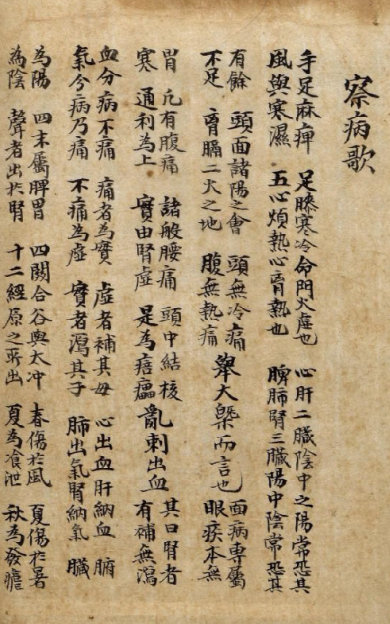 察病歌
手足麻痺 足膝寒冷命門火虛也 心肝二臟陰中之陽常恐其
風與寒濕 五心煩熱心胷熱也 脾肺腎三臟陽中陰常恐其
有餘 頭面諸陽之會 頭無冷痛 舉大槩而言也 面病專屬
不足 胷膈二火之地 腹無熱痛 眼疾本無
胃 凡有腹痛 諸般腰痛 頭中結核 亂刺出血 其曰腎者
寒 通利為上 實由腎虛 是為 有補無瀉
血分病不痛 痛者為實 虛者補其母 心出血肝納血 腑
氣今病乃痛 不痛為虛 實者瀉其子 肺出氣腎納氣 臟
為陽 四末屬脾胃 四關合谷與太冲 春傷於風 夏傷於暑
為陰 聲者出於腎 十二經原之所出 夏為飧泄 秋為發瘧